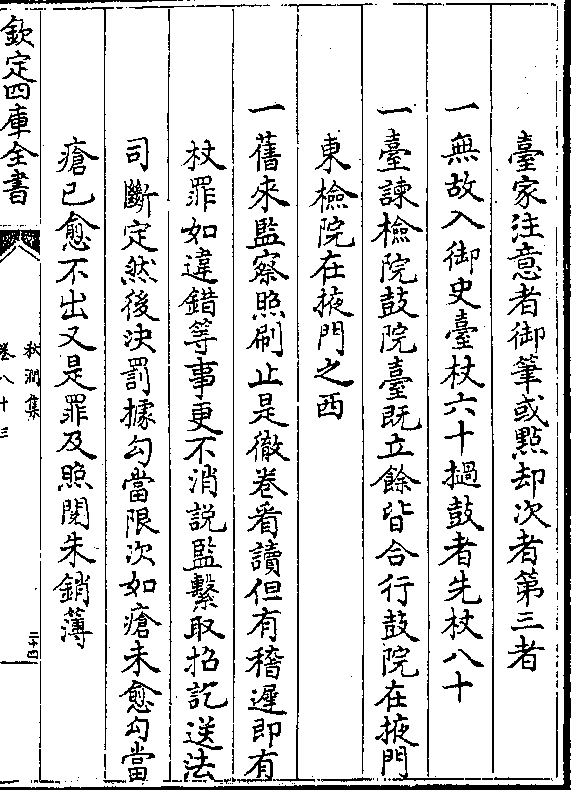 臺家注意者御筆或㸃却次者第三者
一無故入御史臺杖六十撾鼓者先杖八十
一臺諫檢院鼓院臺既立餘皆合行鼓院在掖門
東檢院在掖門之西
一舊來監察照刷止是徹卷看讀但有稽遲即有
杖罪如違錯等事更不消説監繫取招訖送法
司斷定然後決罰據勾當限次如瘡未愈勾當
瘡已愈不出又是罪及照閱朱銷薄
欽定四庫全書
秋澗集
卷八十三
二十四